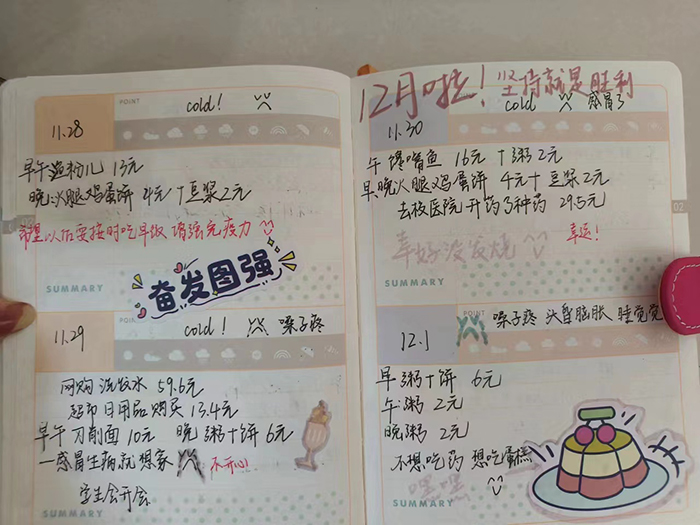 POINT
cold!
11.28
早午 渔粉儿 13元
晚火腿鸡蛋饼 4元+豆浆2元
希望以后要按时吃早饭 增强免疫力
奋发图强
SUMMARY
cold! 嗓子疼
11.29
网购 洗发水 59.6元
超市日用品购买 13.4元
早午 刀削面 10元 晚 粥+饼 6元
一感冒生病就想家 不开心!
学生会开会
SUMMARY
12月啦! 坚持就是胜利
POINT
cold 感冒了
11.30
午 馋嘴鱼 16元 +粥2元
早晚火腿鸡蛋饼 4元+豆浆2元
去校医院开药3种药 29.5元
幸好没发烧 幸运!
SUMMARY
02
POINT
嗓子疼 头昏脑胀 睡觉觉
12.1
早 粥+饼 6元
午 粥 2元
晚粥 2元
不想吃药 想吃蛋糕
嘿嘿
SUMMARY